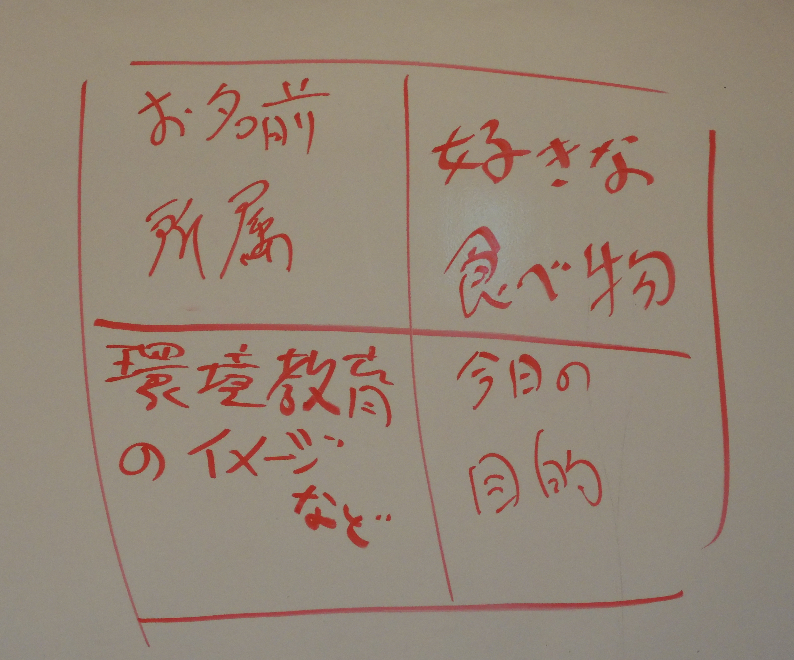 お名前
所属
好きな
食べ物
環境教育
のイメージ
など
今日の
目的